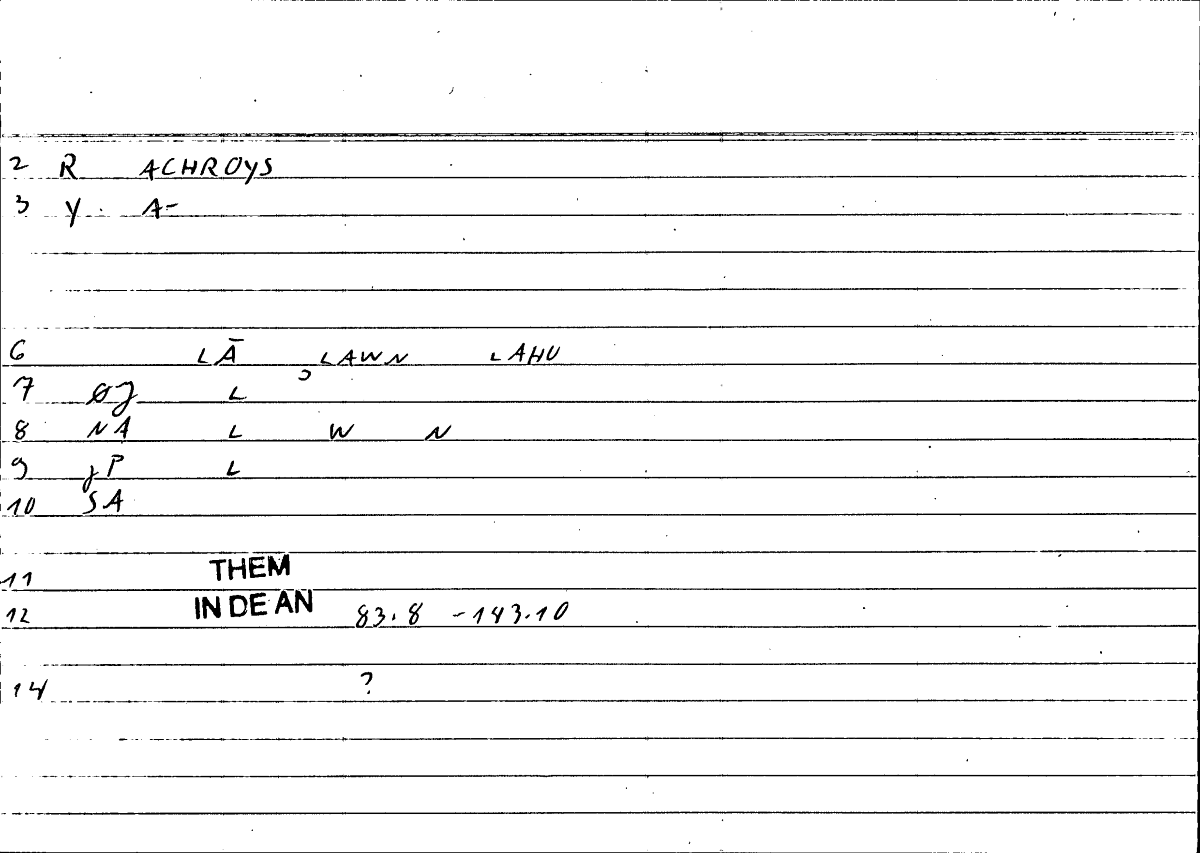 2 R ACHROYS
3 Y. A-
6 LĀ LAWN LAHU
7 ØJ L
8 NA L W N
9 γP L
10 SA
11 THEM
12 IN DE AN 83.8 - 143.10
14 ?